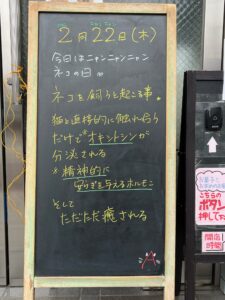 2月22日(木)
今日はニャンニャンニャン
ネコの日
ネコを飼うと起こる事。
猫と直接的に触れ合う
だけで"オキシトシンが
分泌される
※精神的に
安らぎを与えるホルモン
そして
ただただ癒される
こちらの
ボタン
押して
開店
時間